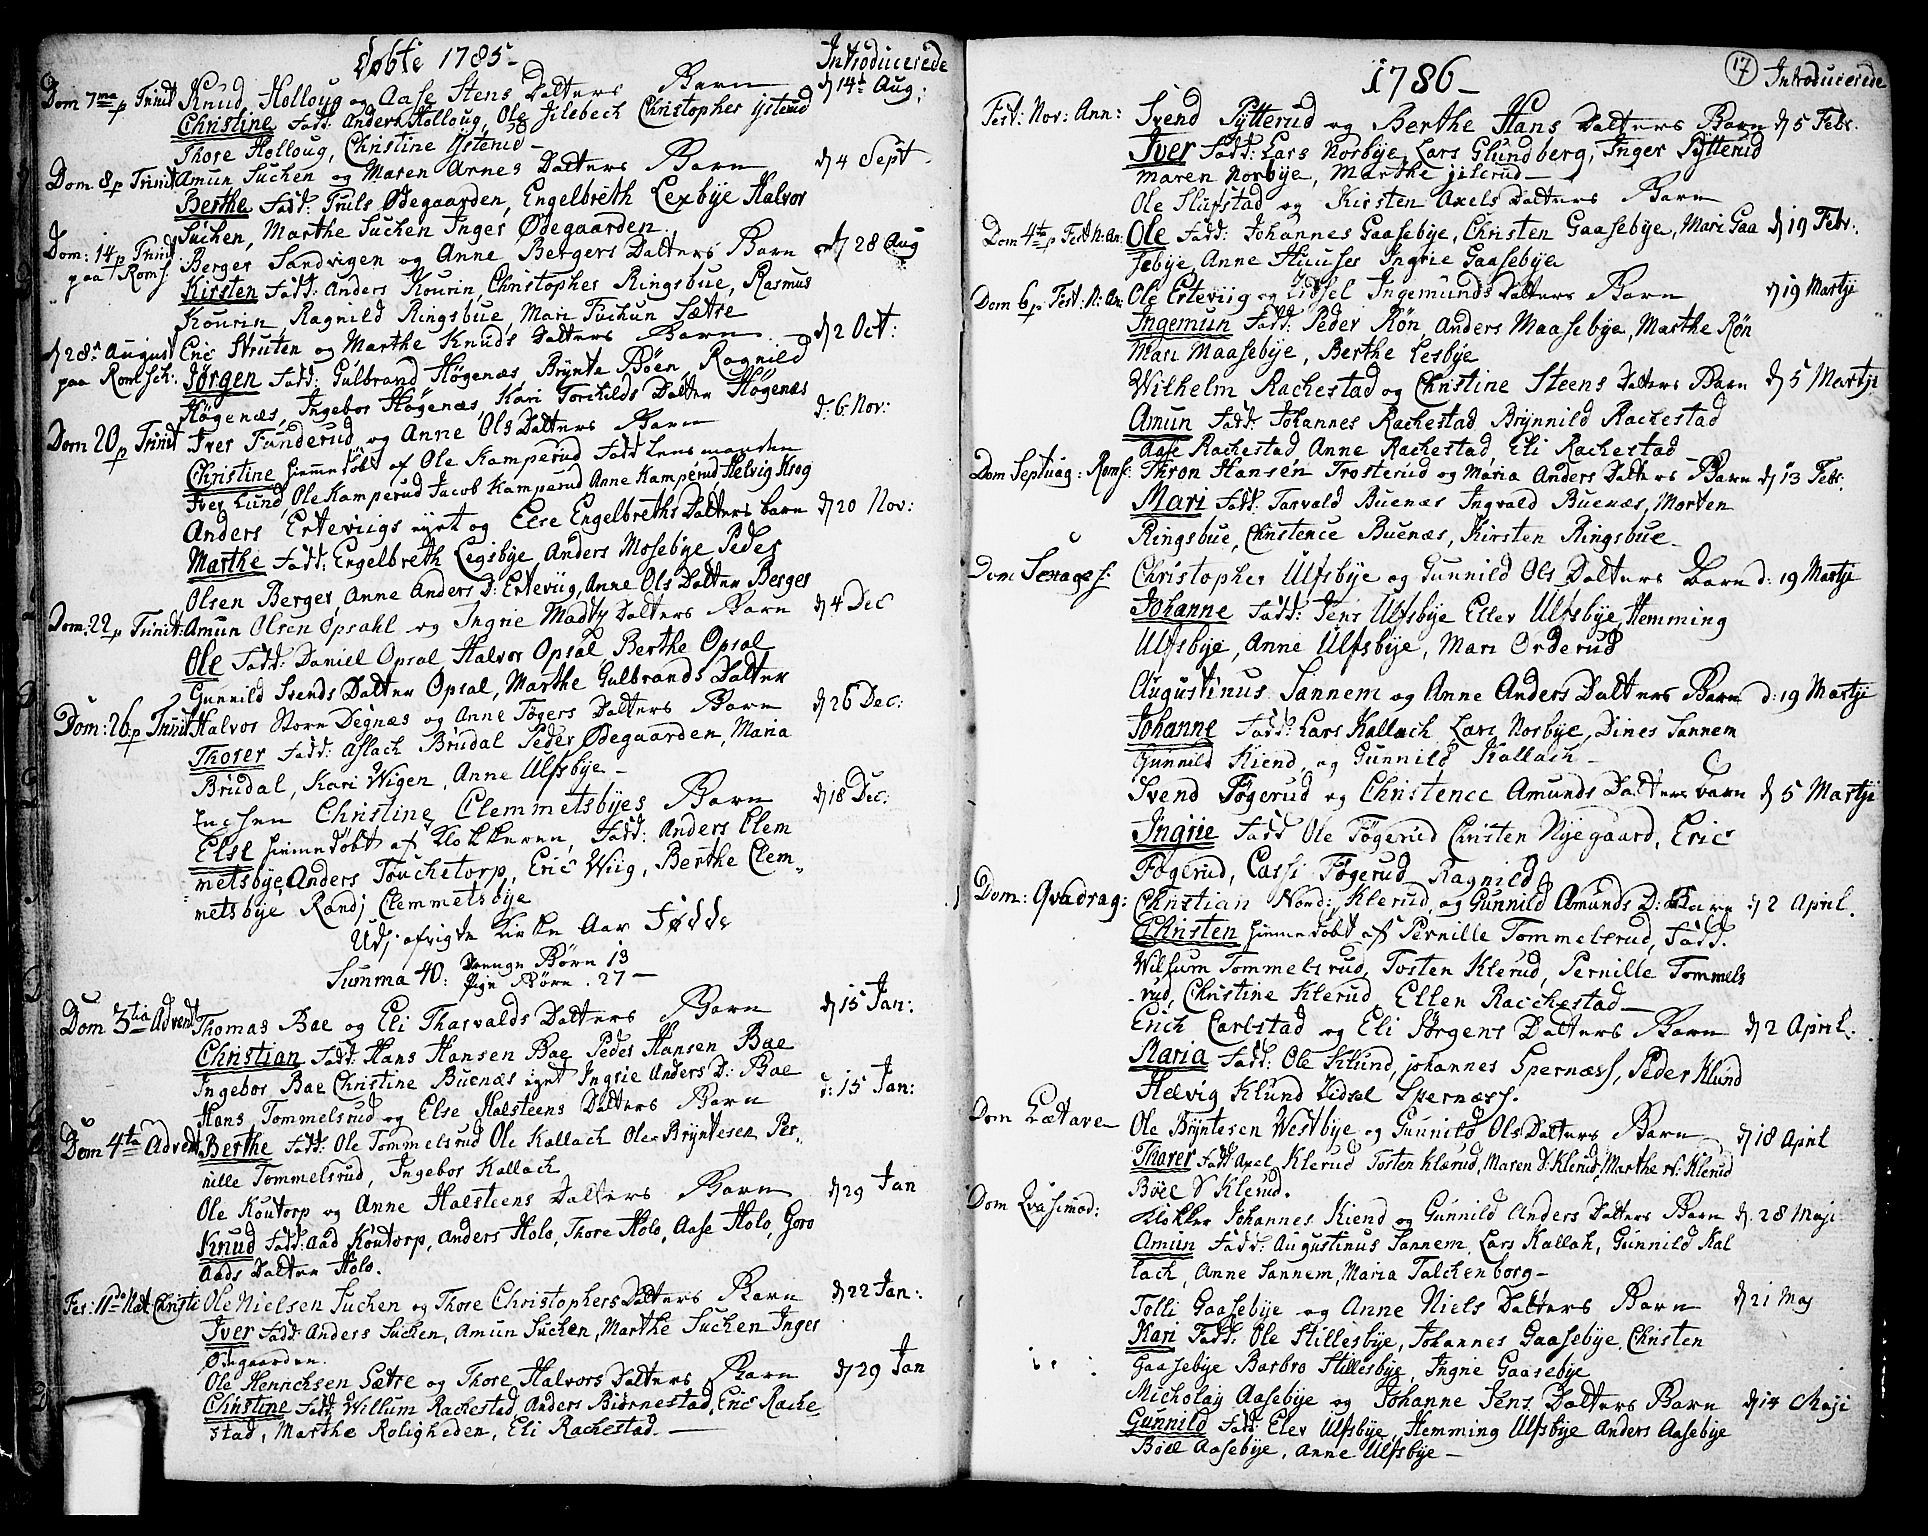 Døbte 1785 - Introducerede
Dom 7ma p Trinit Knud Holloug og Aase Stens Datters Barn d 14 Aug:
Christine Fadd: Anders Holloug, Ole Jilebech Christopher Ysterud
Thore Holloug, Christine Ysterud -
Dom 8 p Trinit Amun Tuchen og Maren Arnes Datters Barn d 4 Sept
Berthe Fadd: Truls Ødegaarden, Engelbreth Lexbye Halvor
Tuchen, Marthe Tuchen Inger Ødegaarden
Dom: 14 p Trinit Berger Sandvigen og Anne Bergers Datters Barn d 28 Aug
paa Roms Kirsten Fadd: Anders Kourin, Christopher Ringsbue, Rasmus
Kourin, Ragnild Ringsbue, Mari Tuchun Sætre
d 28 August Eric Struten og Marthe Knuds Datters Barn d 2 Oct:
paa Romsch: Jørgen Fadd: Gulbrand Høgenæs Brynte Bøen, Ragnild
Høgenæs, Ingebor Høgenæs, Kari Torchilds Datter Høgenæs
Dom 20 p Trinit Iver Funderud og Anne Ols Datters Barn d: 6 Nov:
Christine hiemedøbt af Ole Kamperud Fadd Lensmanden
Iver Lund, Ole Kamperud Jacob Kamperud Anne Kamperud Helvig Krog
Anders Erteviigs eyet og Else Engelbreths Datters barn d 20 Nov:
Marthe Fadd: Engelbreth Legisbye Anders Mosebye Peder
Olsen Berger, Anne Anders D: Erteviig, Anne Ols Datter Berger
Dom: 22 p Trinit: Amun Olsen Opsahl og Ingrie Mads Datters Barn d 4 Dec
Ole Fadd: Daniel Opsal Halvor Opsal Berthe Opsal
Gunnild Svends Datter Opsal, Marthe Gulbrands Datter
Dom: 26 p Trinit Halvor Store Degnæs og Anne Tøgers Datters Barn d 26 Dec:
Thorer Fadd: Aslach Brudal Peder Ødegaarden, Maria
Brudal, Kari Wigen, Anne Ulfsbye -
Enchen Christine Clemmetsbyes Barn d 18 Dec:
Else hiemedøbt af Klokkeren, Fadd: Anders Clem
metsbye, Anders Touchetorp, Eric Wiig, Berthe Clem-
metsbye Randj Clemmetsbye
Udj afvigte Kirke Aar Fødde
Summa 40: Drenge Børn 13
Pige Børn. 27 -
Dom 3tia Advent Thomas Bae og Eli Tharvalds Datters Barn d 15 Jan:
Christian Fadd: Hans Hansen Bae Peder Hansen Bae
Ingebor Bae Christine Buenæs eyet Ingrie Anders D: Bae
Hans Tommelsrud og Else Halsteens Datters Barn d: 15 Jan:
Dom 4ta Advent Berthe Fadd: Ole Tommelsrud Ole Kallach Ole Bryntesen Per-
nille Tommelsrud, Ingebor Kallach
Ole Koutorp og Anne Halsteens Datters Barn d 29 Jan
Knud Fadd: Aad Koutorp, Anders Holo, Thore Holo, Aase Holo, Goro
Aads Datter Holo.
Fer: IIde Nat. Christi Ole Nielsen Tuchen og Thore Christophers Datters Barn d 22 Jan:
Iver Fadd: Anders Tuchen, Amun Tuchen, Marthe Tuchen Inger
Ødegaarden.
Ole Henrichsen Sætre og Thore Halvors Datters Barn d 29 Jan
Christine Fadd Willum Rachestad Anders Biørnestad, Eric Rache-
stad, Marthe Roligheden, Eli Rachestad. -
1786 - 17 Introducerede
Fest: Nov: Ann: Svend Pytterud og Berthe Hans Datters Barn d 5 Febr.
Iver Fadd: Lars Norbye, Lars Glundberg, Inger Pytterud
Maren Norbye, Marthe jilerud -
Ole Slufstad og Kirsten Axels Datters Barn
Dom 4te p Fest N: An: Ole Fadd: Johannes Gaasebye, Christen Gaasebye, Mari Gaa d 19 Febr:
sebye, Anne Huuser Ingrie Gaasebye
Dom 6 p Fest. N: An: Ole Erteviig og Lidsel Ingemunds Datters Barn d 19 Martji
Ingemun Fadd: Peder Røn Anders Maasebye, Marthe Røn
Mari Maasebye, Berthe Lesbye
Wilhelm Rachestad og Christine Steens Datters Barn d 5 Martji
Amun Fadd: Johannes Rachestad Brynnild Rachestad
Aase Rachestad Anne Rachestad, Eli Rachestad
Dom Septuag: Roms: Thron Hansen Trosterud og Maria Anders Datters Barn d 13 Febr.
Mari Fadd: Tarvald Buenæs Ingvald Buenæs, Morten
Ringsbue, Christence Buenæs, Kirsten Ringsbue -
Dom Sexages: Christopher Ulfsbye og Gunnild Ols Datters Barn d: 19 Martji
Johanne Fadd: Jens Ulfsbye Ellev Ulfsbye, Hemming
Ulfsbye, Anne Ulfsbye, Mari Orderud
Augustinus Sannem og Anne Anders Datters Barn d: 19 Martji
Johanne Fadd: Lars Kallach Lars Norbye, Dines Sannem
Gunnild Kiend, og Gunnild Kallach -
Svend Føgerud og Christence Amunds Datters barn d 5 Martji
Ingrie Fadd Ole Føgerud Christen Nyegaard, Eric
Føgerud, Cassi Føgerud Ragnild
Dom: Qvadrag: Christian Nord: Klerud, og Gunnild Amunds D: Barn d 2 April.
Christen hiemedøbt af Pernille Tommelsrud, Fadd.
Wilsum Tommelsrud, Tosten Klerud, Pernille Tommels
-rud, Christine Klerud, Ellen Racchestad -
Erich Carlstad og Eli Jørgens Datters Barn d 2 April:
Maria Fadd: Ole Klund, johannes Spernæss, Peder Klund
Helvig Klund Lidsel Spernæss.
Dom Lætare Ole Byntesen Westbye og Gunnild Ols Datters Barn d 18 April
Tharer Fadd Axel Klerud Tosten Klærud, Maren D: Klerud, Marthe N: Klerud
Böel D Klerud.
Dom Qvasimod: Klokker Johannes Kiend og Gunnild Anders Datters Barn d. 28 Maji
Amun Fadd: Augustinus Sannem, Lars Kallah, Gunnild Kal
lach, Anne Sannem, Maria Falchenborg -
Tolli Gaasebye og Anne Niels Datters Barn d 21 Maj
Kari Fadd: Ole Stillesbye, Johannes Gaasebye, Christen
Gaasebye Barbro Stillesbye, Ingrie Gaasebye
Micholay Aasebye og Johanne Jens Datters Barn d 14 Maji
Gunnild Fadd: Elev Ulfsbye, Hemming Ulfsbye Anders Aasebye
Böel Aasebye, Anne Ulfsbye -